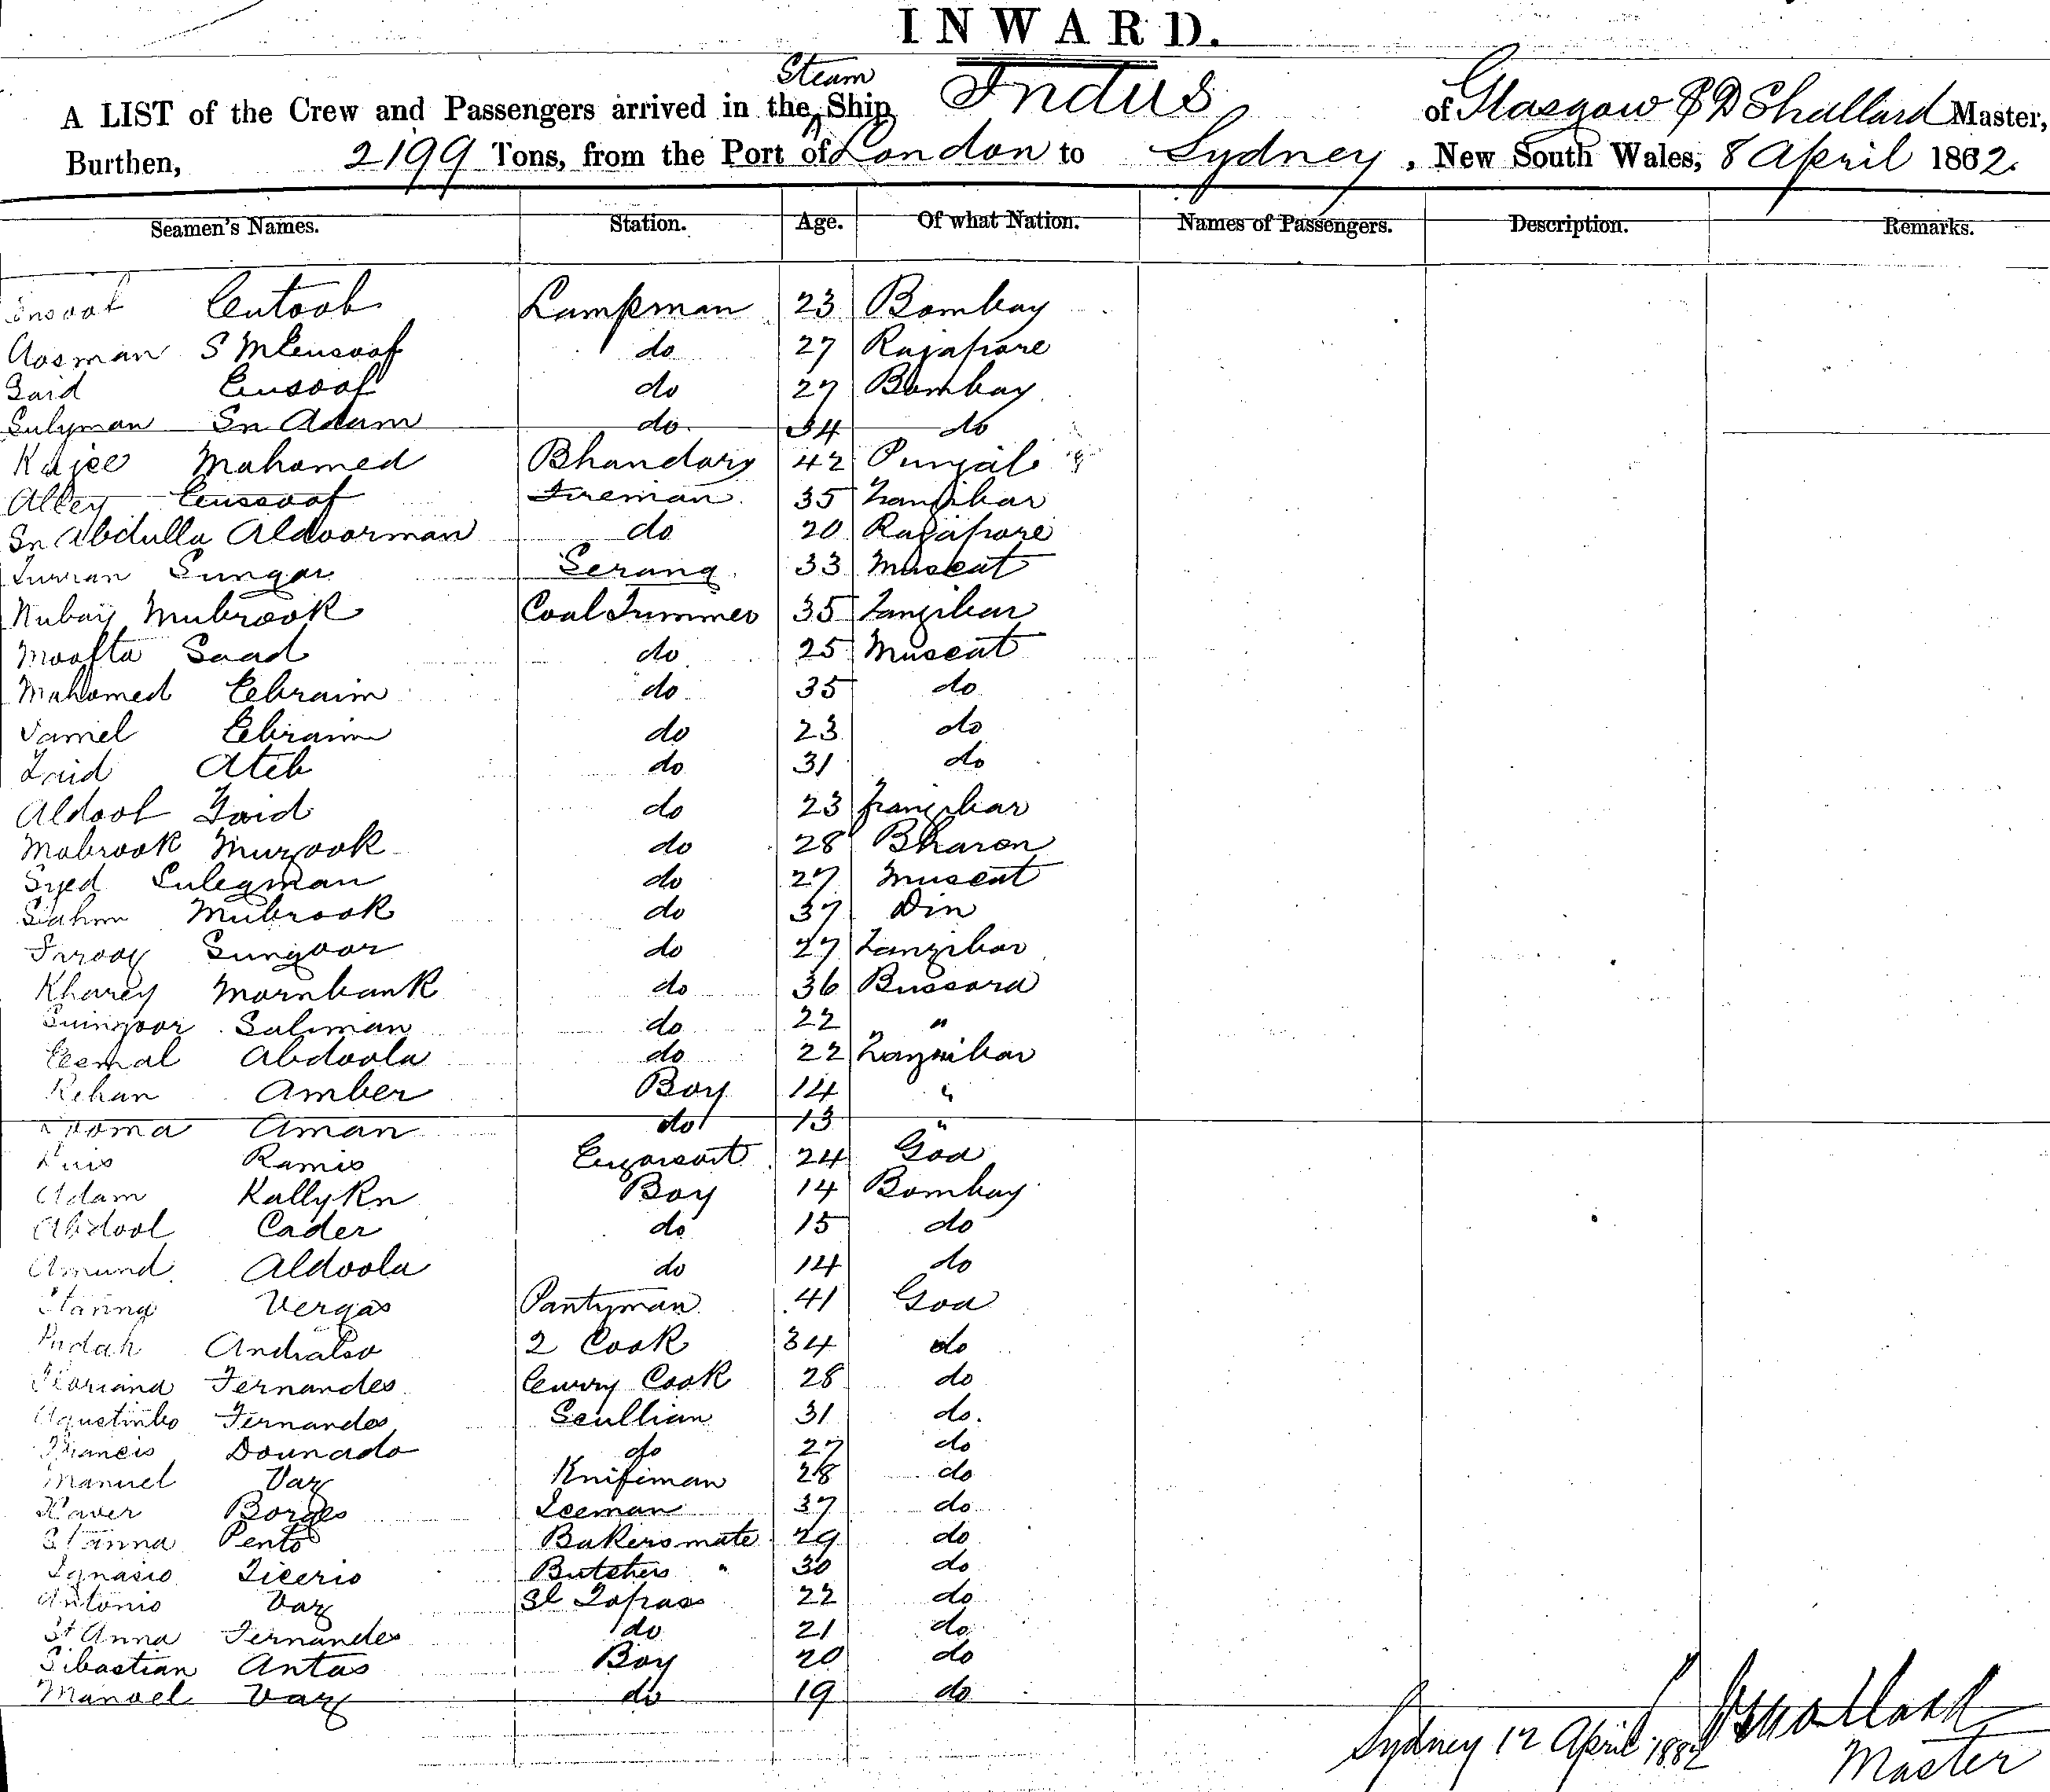 INWARD.
Steam
A LIST of the Crew and Passengers arrived in the Ship Indus of Glasgow Shallard Master,
Burthen, 2199 Tons, from the Port of London to Sydney, New South Wales, 8 April 1882.
Seamen's Names. Station. Age. Of what Nation. Names of Passengers. Description. Remarks.
Lampman 23 Bombay
Aosman do 27 Rajapore
Eusoof do 27 Bombay
Sulyman Sn Adam do. 34 do
Kajee Mahomed Bhandary 42 Punjab
Alley Eussoof Fireman 35 Zanzibar
Sn Abdulla Aldoorman do 20 Rajapore
Sungar Serang 33 Muscat
Nubay Mubrook Coal Trimmer 35 Zanzibar
Moofta Saad do 25 Muscat
Mahomed Eebraim do 35 do
Eebraim do 23 do
Zaid Ateb do 31 do
Aldool Zaid do 23 Zranzibar
Mabrook Murzook do 28 Bharon
Syed Suleqman do 27 Muscat
Mubrook do 37 Din
Sungoor do 27 Zanzibar
Kharey Mornbank do 36 Bussora
Suingoor Saliman do 22 "
Abdoola do 22 Zanzibar
Rehan Amber Boy 14 "
Aman do 13 "
Luis Ramis 24 Goa
Adam KallyRn Boy 14 Bombay
Abdool Cader do 15 do
Aldoola do 14 do
Vergas Pantyman 41 Goa
2 Cook 34 do
Floriana Fernandes Curry Cook 28 do
Agustinho Fernandes Scullian 31 do.
Francis Dounado do 27 do
Manuel Vaz Knifeman 28 do
Xaver Borges Iceman 37 do
St Anna Pento Bakers mate 29 do
Ignasio Ticerio Butchers " 30 do
Antonio Vaz Sl Topass 22 do
St Anna Fernandes do 21 do
Sibastian Antas Boy 20 do
Manoel Vaz do 19 do
Sydney 12 April 1882
Master